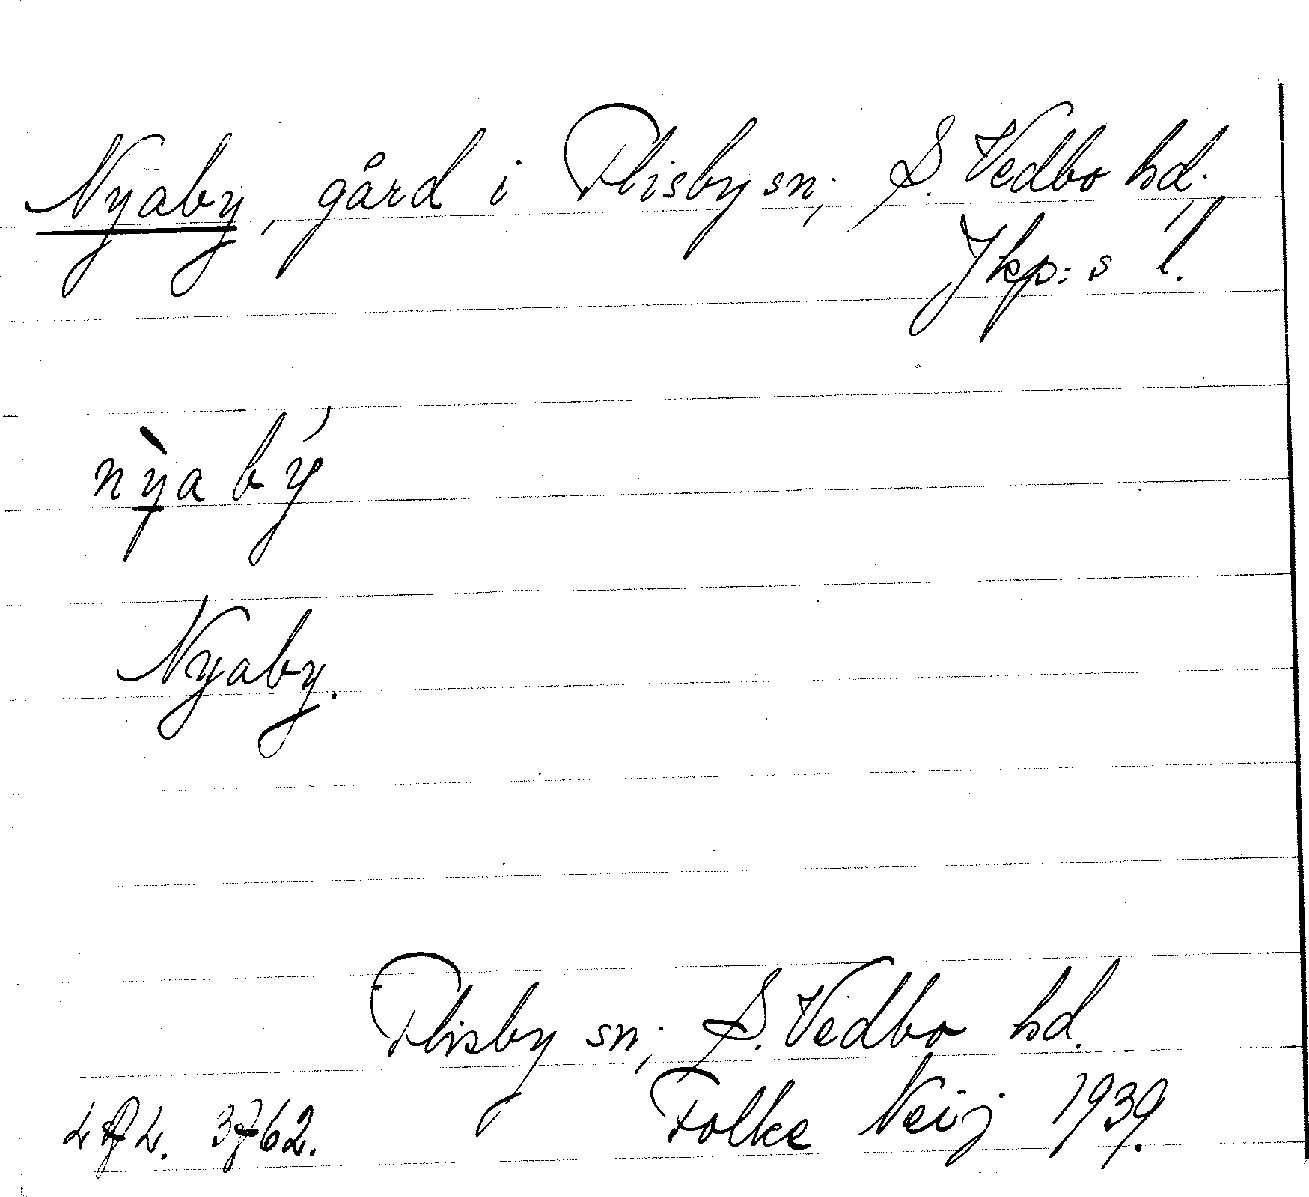 Nyaby, gård i Flisby sn; S. Vedbo hd.
Jkp:s l.
nỳa bý
Nyaby.
Flisby sn; S. Vedbo hd.
3762. Folke Neij 1939.